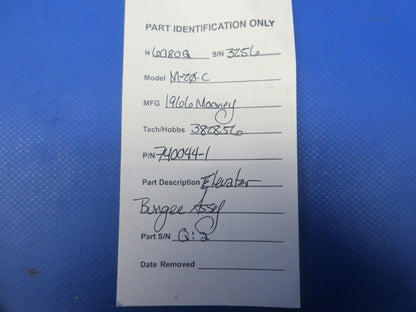 PART IDENTIFICATION ONLY
N 6080Q S/N 3256
Model M-20-C
MFG 1966 Mooney
Tach/Hobbs 3828.56
P/N 740044-1
Part Description Elevator
Bungee Assy
Part S/N Q:2
Date Removed